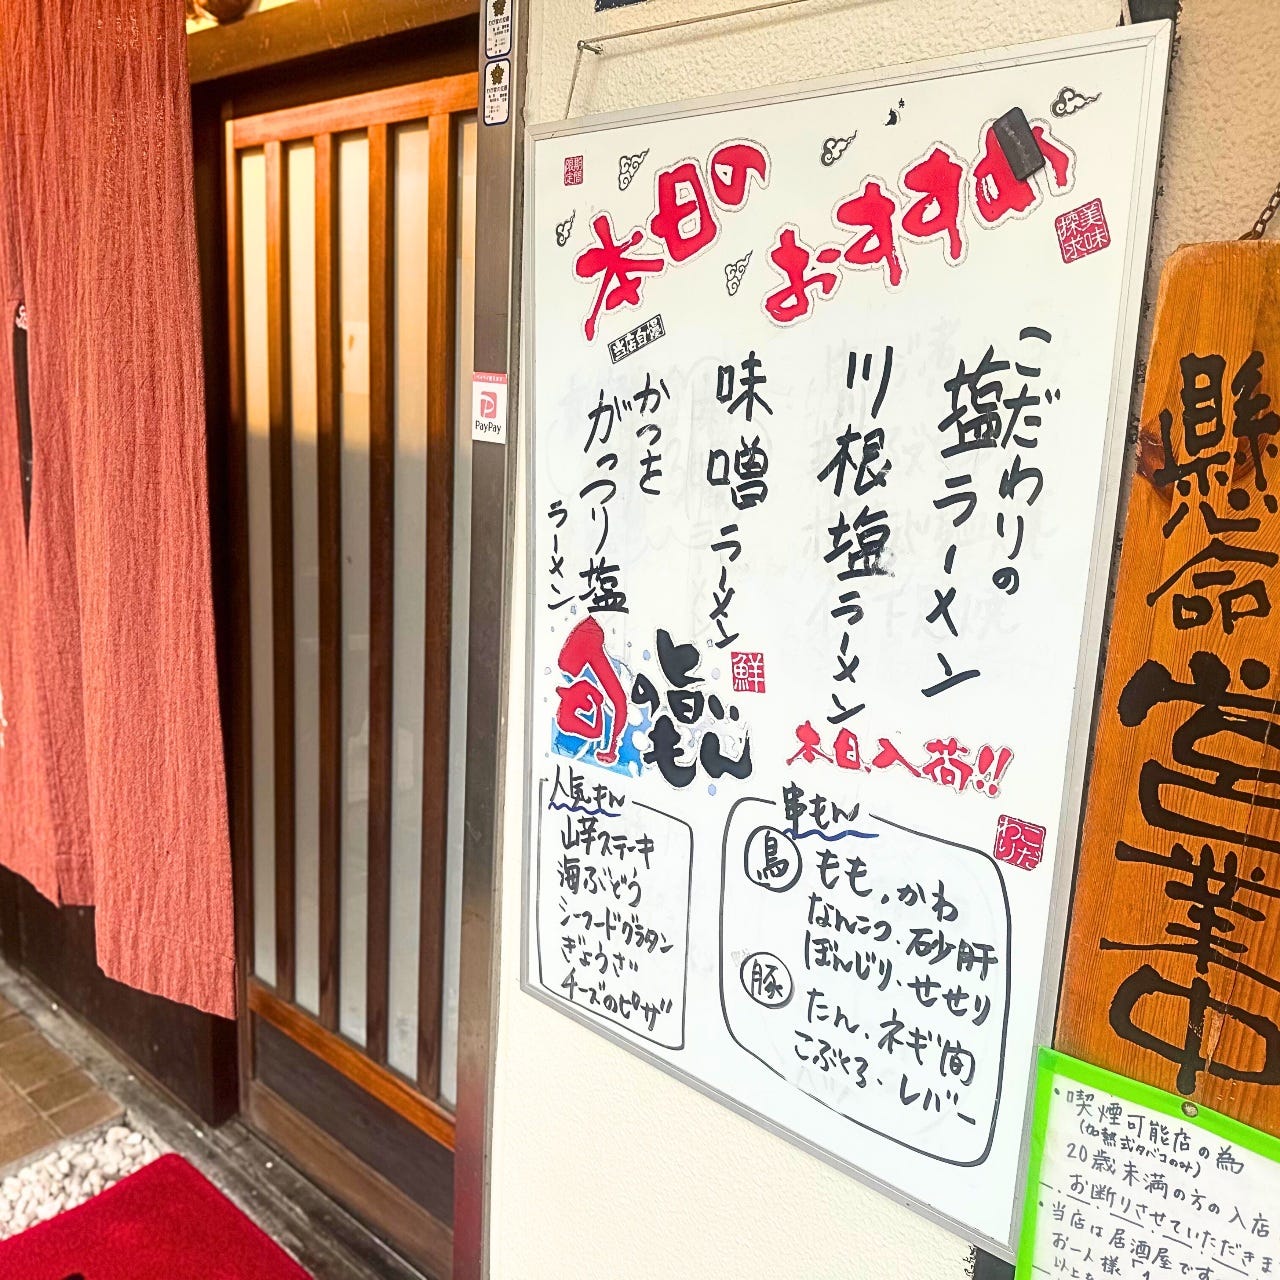 本日の
おすすめ
期間
限定
美味
探求
当店自慢
こだわりの
塩ラーメン
川根塩ラーメン
味噌ラーメン
かつを
がっつり塩
ラーメン
旬の旨い
もん
鮮
本日入荷!!
こだ
わり
人気もん
山芋ステーキ
海ぶどう
シーフードグラタン
ぎょうざ
チーズのピザ
串もん
鳥 もも、かわ
なんこつ、砂肝
ぼんじり、せせり
豚 たん、ネギ間
こぶくろ、レバー
PayPay
懸命営業中
・喫煙可能店の為
(加熱式タバコのみ)
20歳未満の方の入店
お断りさせていただきま
・当店は居酒屋です
お一人様
以上